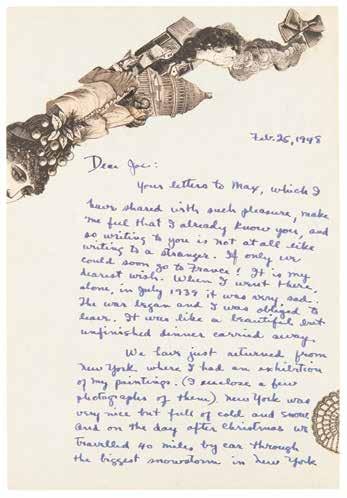 Feb. 25, 1948
Dear Joe:
Your letters to Max, which I
have shared with such pleasure, make
me feel that I already know you, and
so writing to you is not at all like
writing to a stranger. If only we
could soon go to France! It is my
dearest wish. When I went there,
alone, in July 1939 it was very sad.
The war began and I was obliged to
leave. It was like a beautiful but
unfinished dinner carried away.
We have just returned from
New York where I had an exhibition
of my paintings. (I enclose a few
photographs of them) New York was
very nice but full of cold and snow
and on the day after Christmas we
travelled 40 miles by car through
the biggest snowstorm in New York